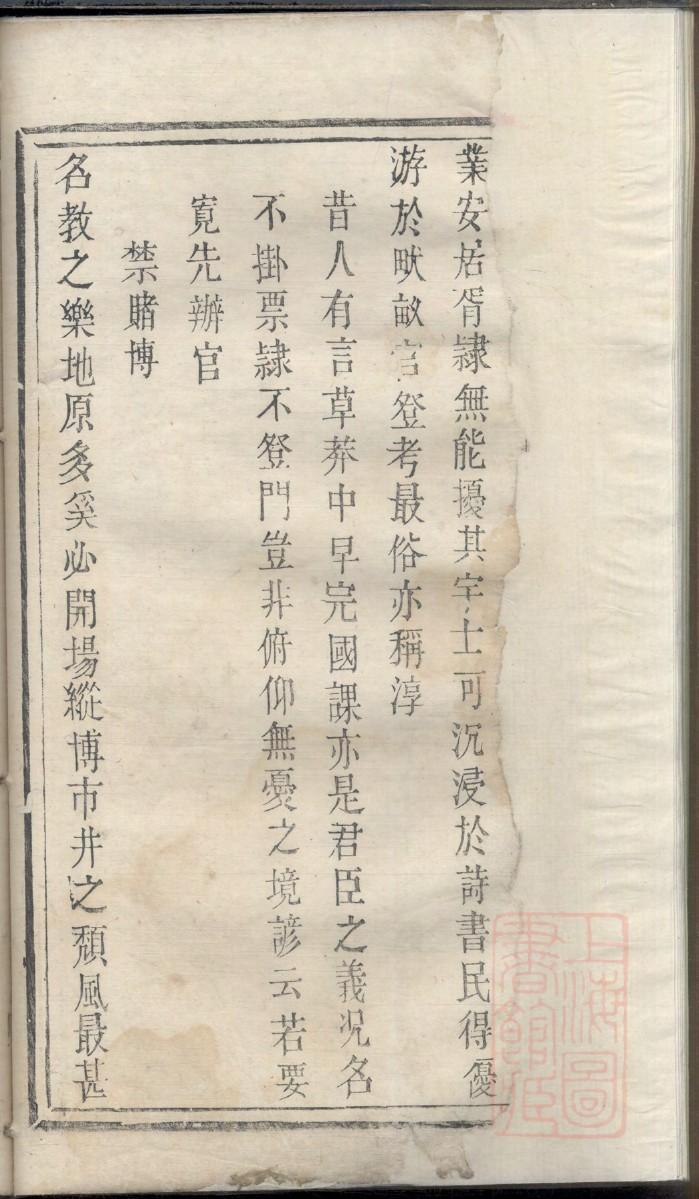 業安居胥隷無能擾其宇士可沉浸於詩書民得優
游於畎畝官登考最俗亦稱淳
昔人有言草莽中早完國課亦是君臣之義况名
不掛票隷不登門豈非俯仰無憂之境諺云若要
寛先辦官
禁賭博
名教之樂地原多奚必開場縱博市井之頹風最甚
上海圖
書館藏